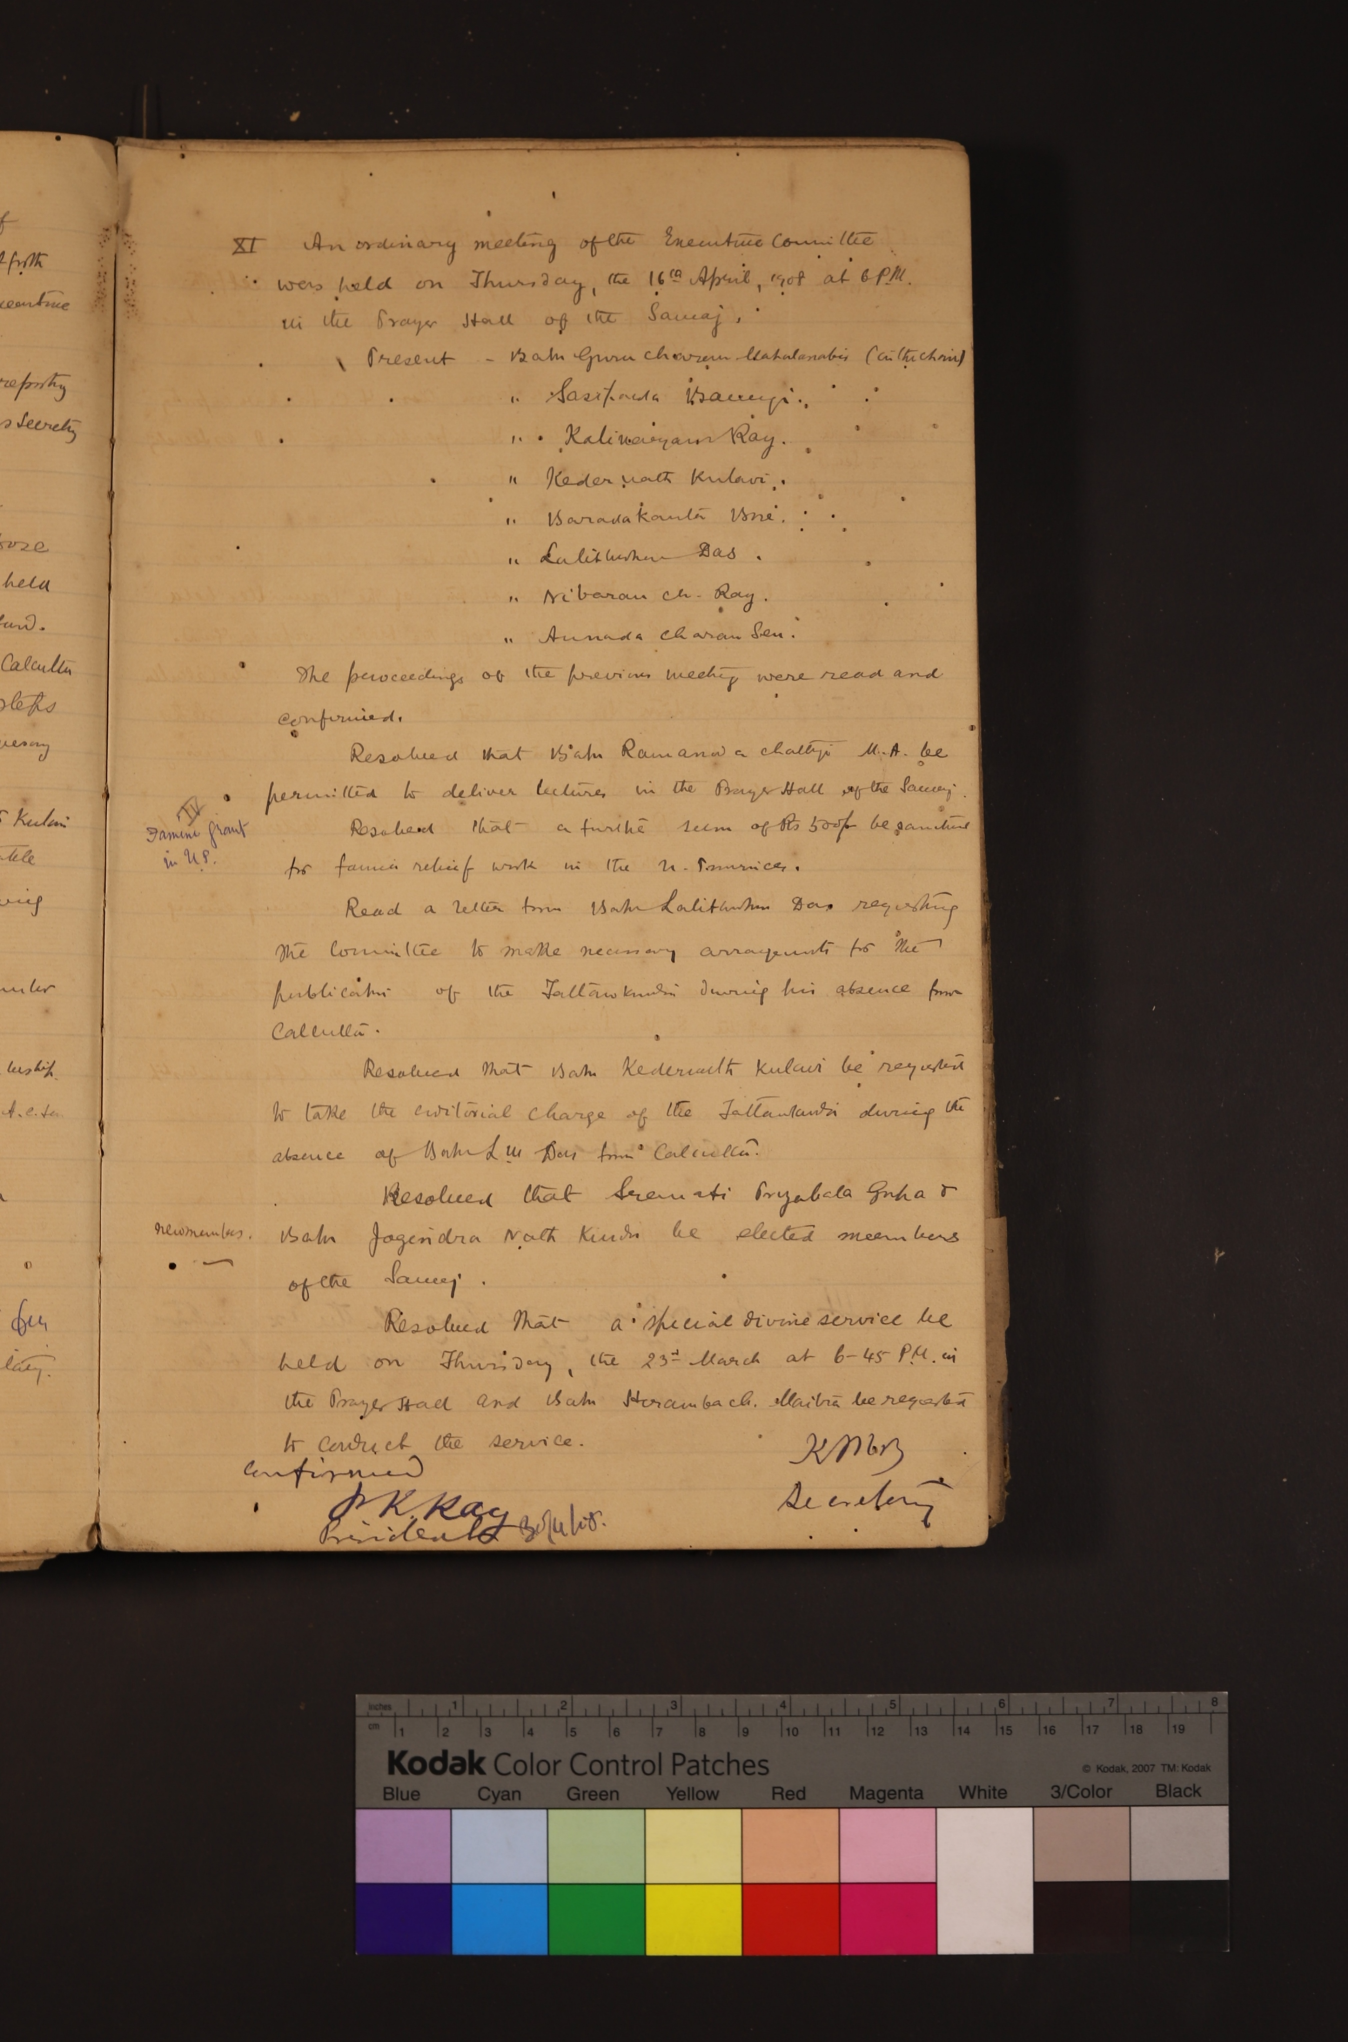 XI An ordinary meeting of the Executive Committee
was held on Thursday, the 16th April, 1908 at 6 P.M.
in the Prayer Hall of the Samaj.
Present - Babu Guru charan Mahalanabis (in the chair)
" Sasipada Banerji.
" Kalinarayan Ray.
" Kedernath Kulavi.
" Baradakanta Bose.
" Lalitmohan Das.
" Nibaran ch. Ray.
" Annada charan Sen.
The proceedings of the previous meeting were read and
confirmed.
Resolved that Babu Ramananda chatterji M.A. be
permitted to deliver lectures in the Prayer Hall of the Samaj.
IV
Famine grant
in U.P.
Resolved that a further sum of Rs 500/- be sanctioned
for famine relief work in the U. Provinces.
Read a letter from Babu Lalitmohan Das requesting
the Committee to make necessary arrangements for the
publication of the Tattwakaumudi during his absence from
Calcutta.
Resolved that Babu Kedernath Kulavi be requested
to take the editorial charge of the Tattwakaumudi during the
absence of Babu L M Das from Calcutta.
new members.
Resolved that Sremati Priyabala Guha &
Babu Jogindra Nath Kundu be elected meembers
of the Samaj.
Resolved that a special divine service be
held on Thursday, the 23rd March at 6-45 P.M. in
the Prayer Hall and Babu Heramba ch. Maitra be requested
to conduct the service.
Confirmed
P. K. Ray
President
Secretary
of
held
Calcutta
steps
Kulavi
inches 1 2 3 4 5 6 7 8
cm 1 2 3 4 5 6 7 8 9 10 11 12 13 14 15 16 17 18 19
Kodak Color Control Patches
© Kodak, 2007 TM: Kodak
Blue Cyan Green Yellow Red Magenta White 3/Color Black